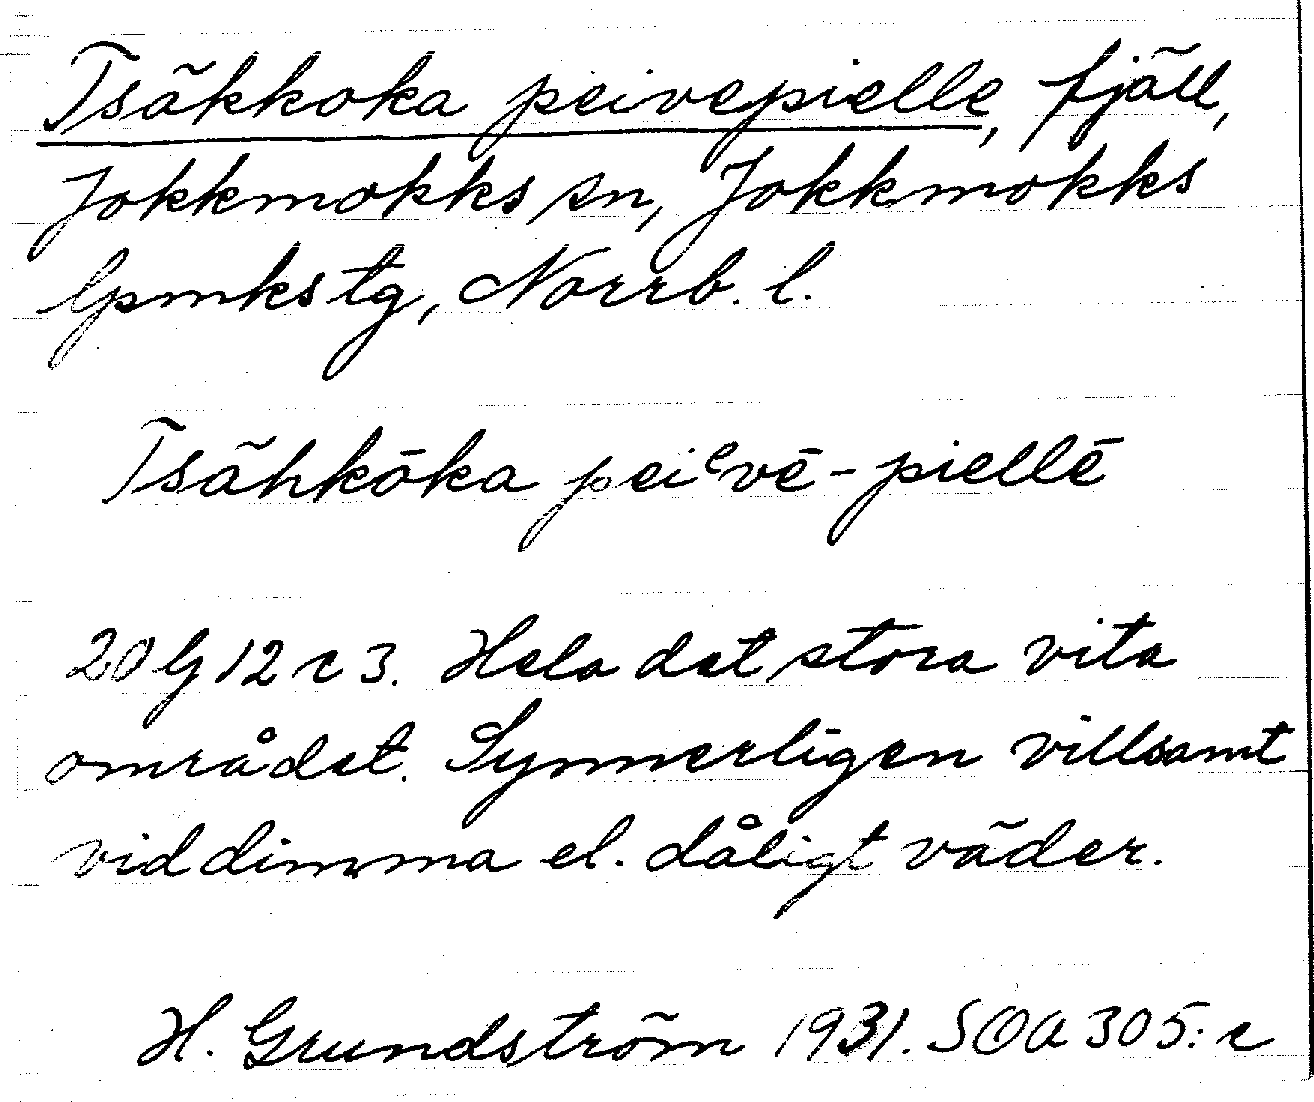 Tsäkkoka peivepielle, fjäll,
Jokkmokks sn, Jokkmokks
lpmkstg, Norrb. l.
Tsähkōka peiᵉvē-piellē
20 G 12 c 3. Hela det stora vita
området. Synnerligen villsamt
vid dimma el. dåligt väder.
H. Grundström 1931. SOA 305:c